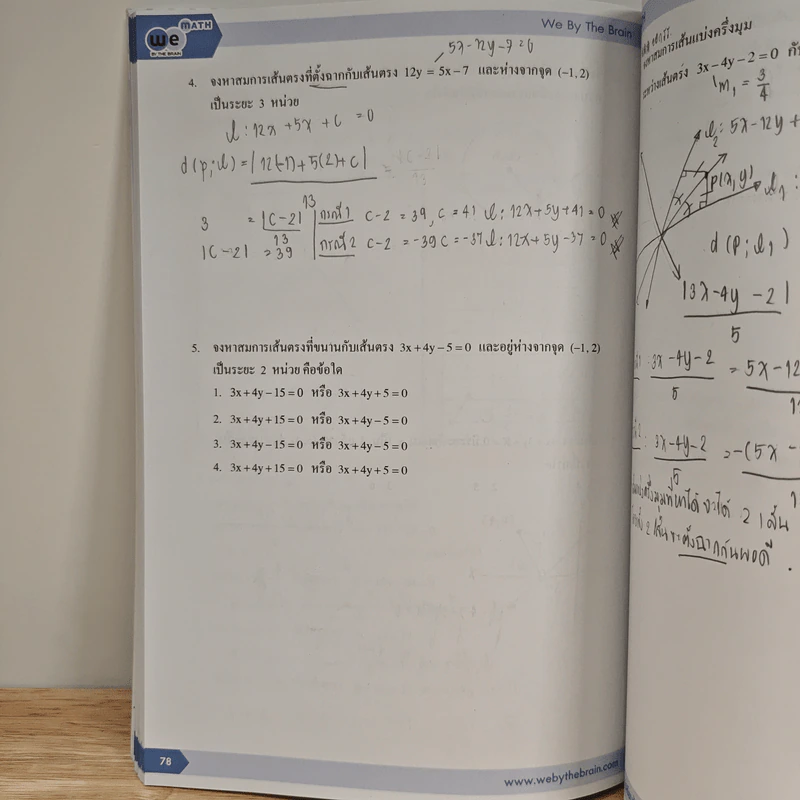 we MATH
BY THE BRAIN
We By The Brain
5x-12y-7=0
4. จงหาสมการเส้นตรงที่ตั้งฉากกับเส้นตรง 12y = 5x−7 และห่างจากจุด (−1, 2)
เป็นระยะ 3 หน่วย
l : 12x +5x + c = 0
d(p;l) = | 12(-1) + 5(2) + c |
13
3 = |c-2|
13
กรณี 1 c-2 = 39, c = 41 l: 12x+5y+41 = 0
|c-2| = 39
กรณี 2 c-2 = -39 c = -37 l: 12x+5y-37 = 0
5. จงหาสมการเส้นตรงที่ขนานกับเส้นตรง 3x+4y−5=0 และอยู่ห่างจากจุด (−1, 2)
เป็นระยะ 2 หน่วย คือข้อใด
1. 3x+4y−15=0 หรือ 3x+4y+5=0
2. 3x+4y+15=0 หรือ 3x+4y−5=0
3. 3x+4y−15=0 หรือ 3x+4y−5=0
4. 3x+4y+15=0 หรือ 3x+4y+5=0
78
www.webythebrain.com
สมการเส้นแบ่งครึ่งมุม
ระหว่างเส้นตรง 3x−4y−2=0
m1 = 3/4
l2: 5x-12y+
p(x,y)
l1 :
d(p;l1)
|3x-4y-2|
5
3x-4y-2 = 5x-12
5
3x-4y-2 = -(5x -
5
ครึ่งมุมที่หาได้ จะได้ 2 เส้น
2 เส้น จะตั้งฉากกันพอดี.